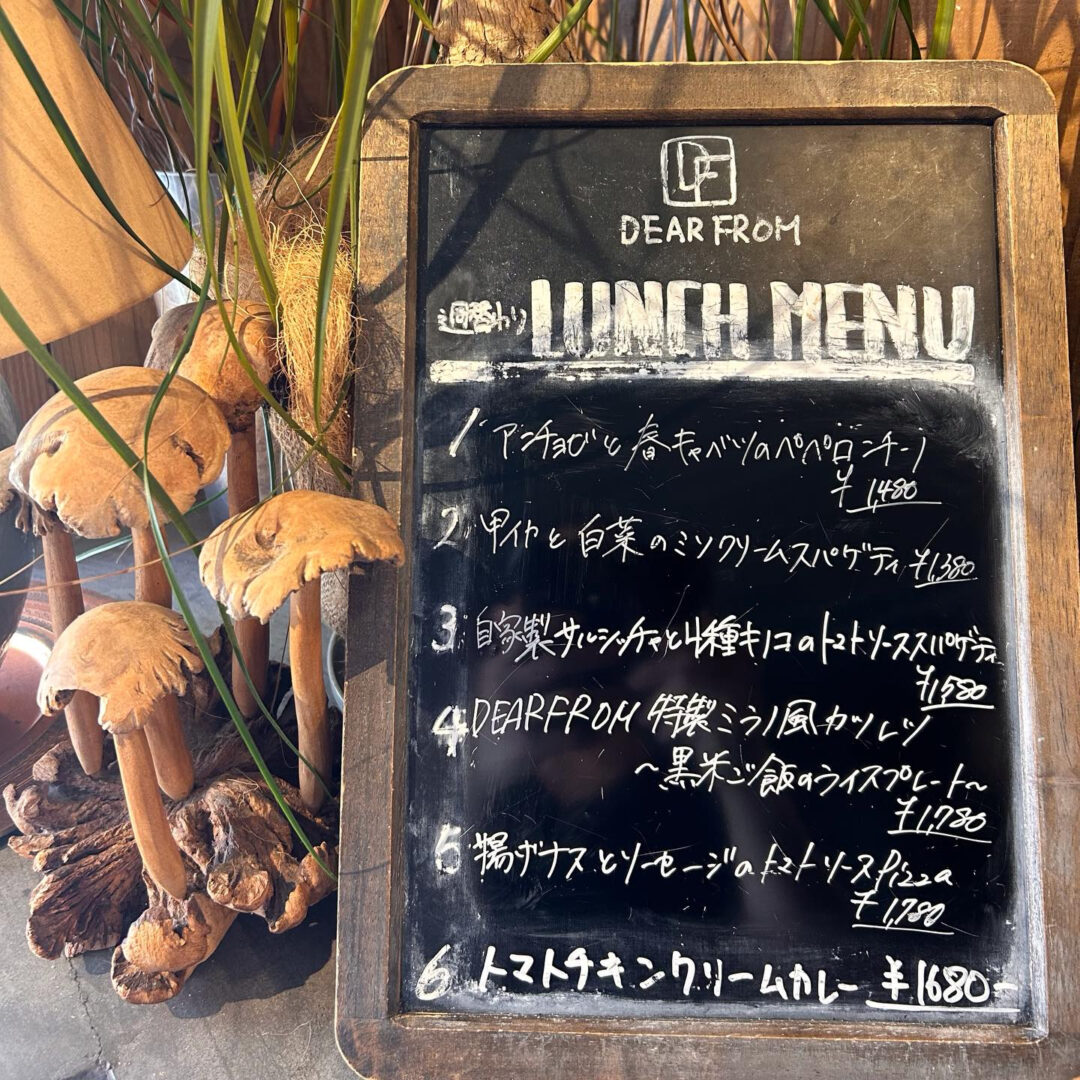 DF
DEAR FROM
週替わり LUNCH MENU
1 アンチョビと春キャベツのペペロンチーノ
¥1,480
2 甲イカと白菜のミソクリームスパゲティ ¥1,380
3 自家製サルシッチャと4種キノコのトマトソーススパゲティ
¥1,580
4 DEARFROM 特製ミラノ風カツレツ
〜黒米ご飯のライスプレート〜
¥1,780
5 揚げナスとソーセージのトマトソースPizza
¥1,780
6 トマトチキンクリームカレー ¥1680-